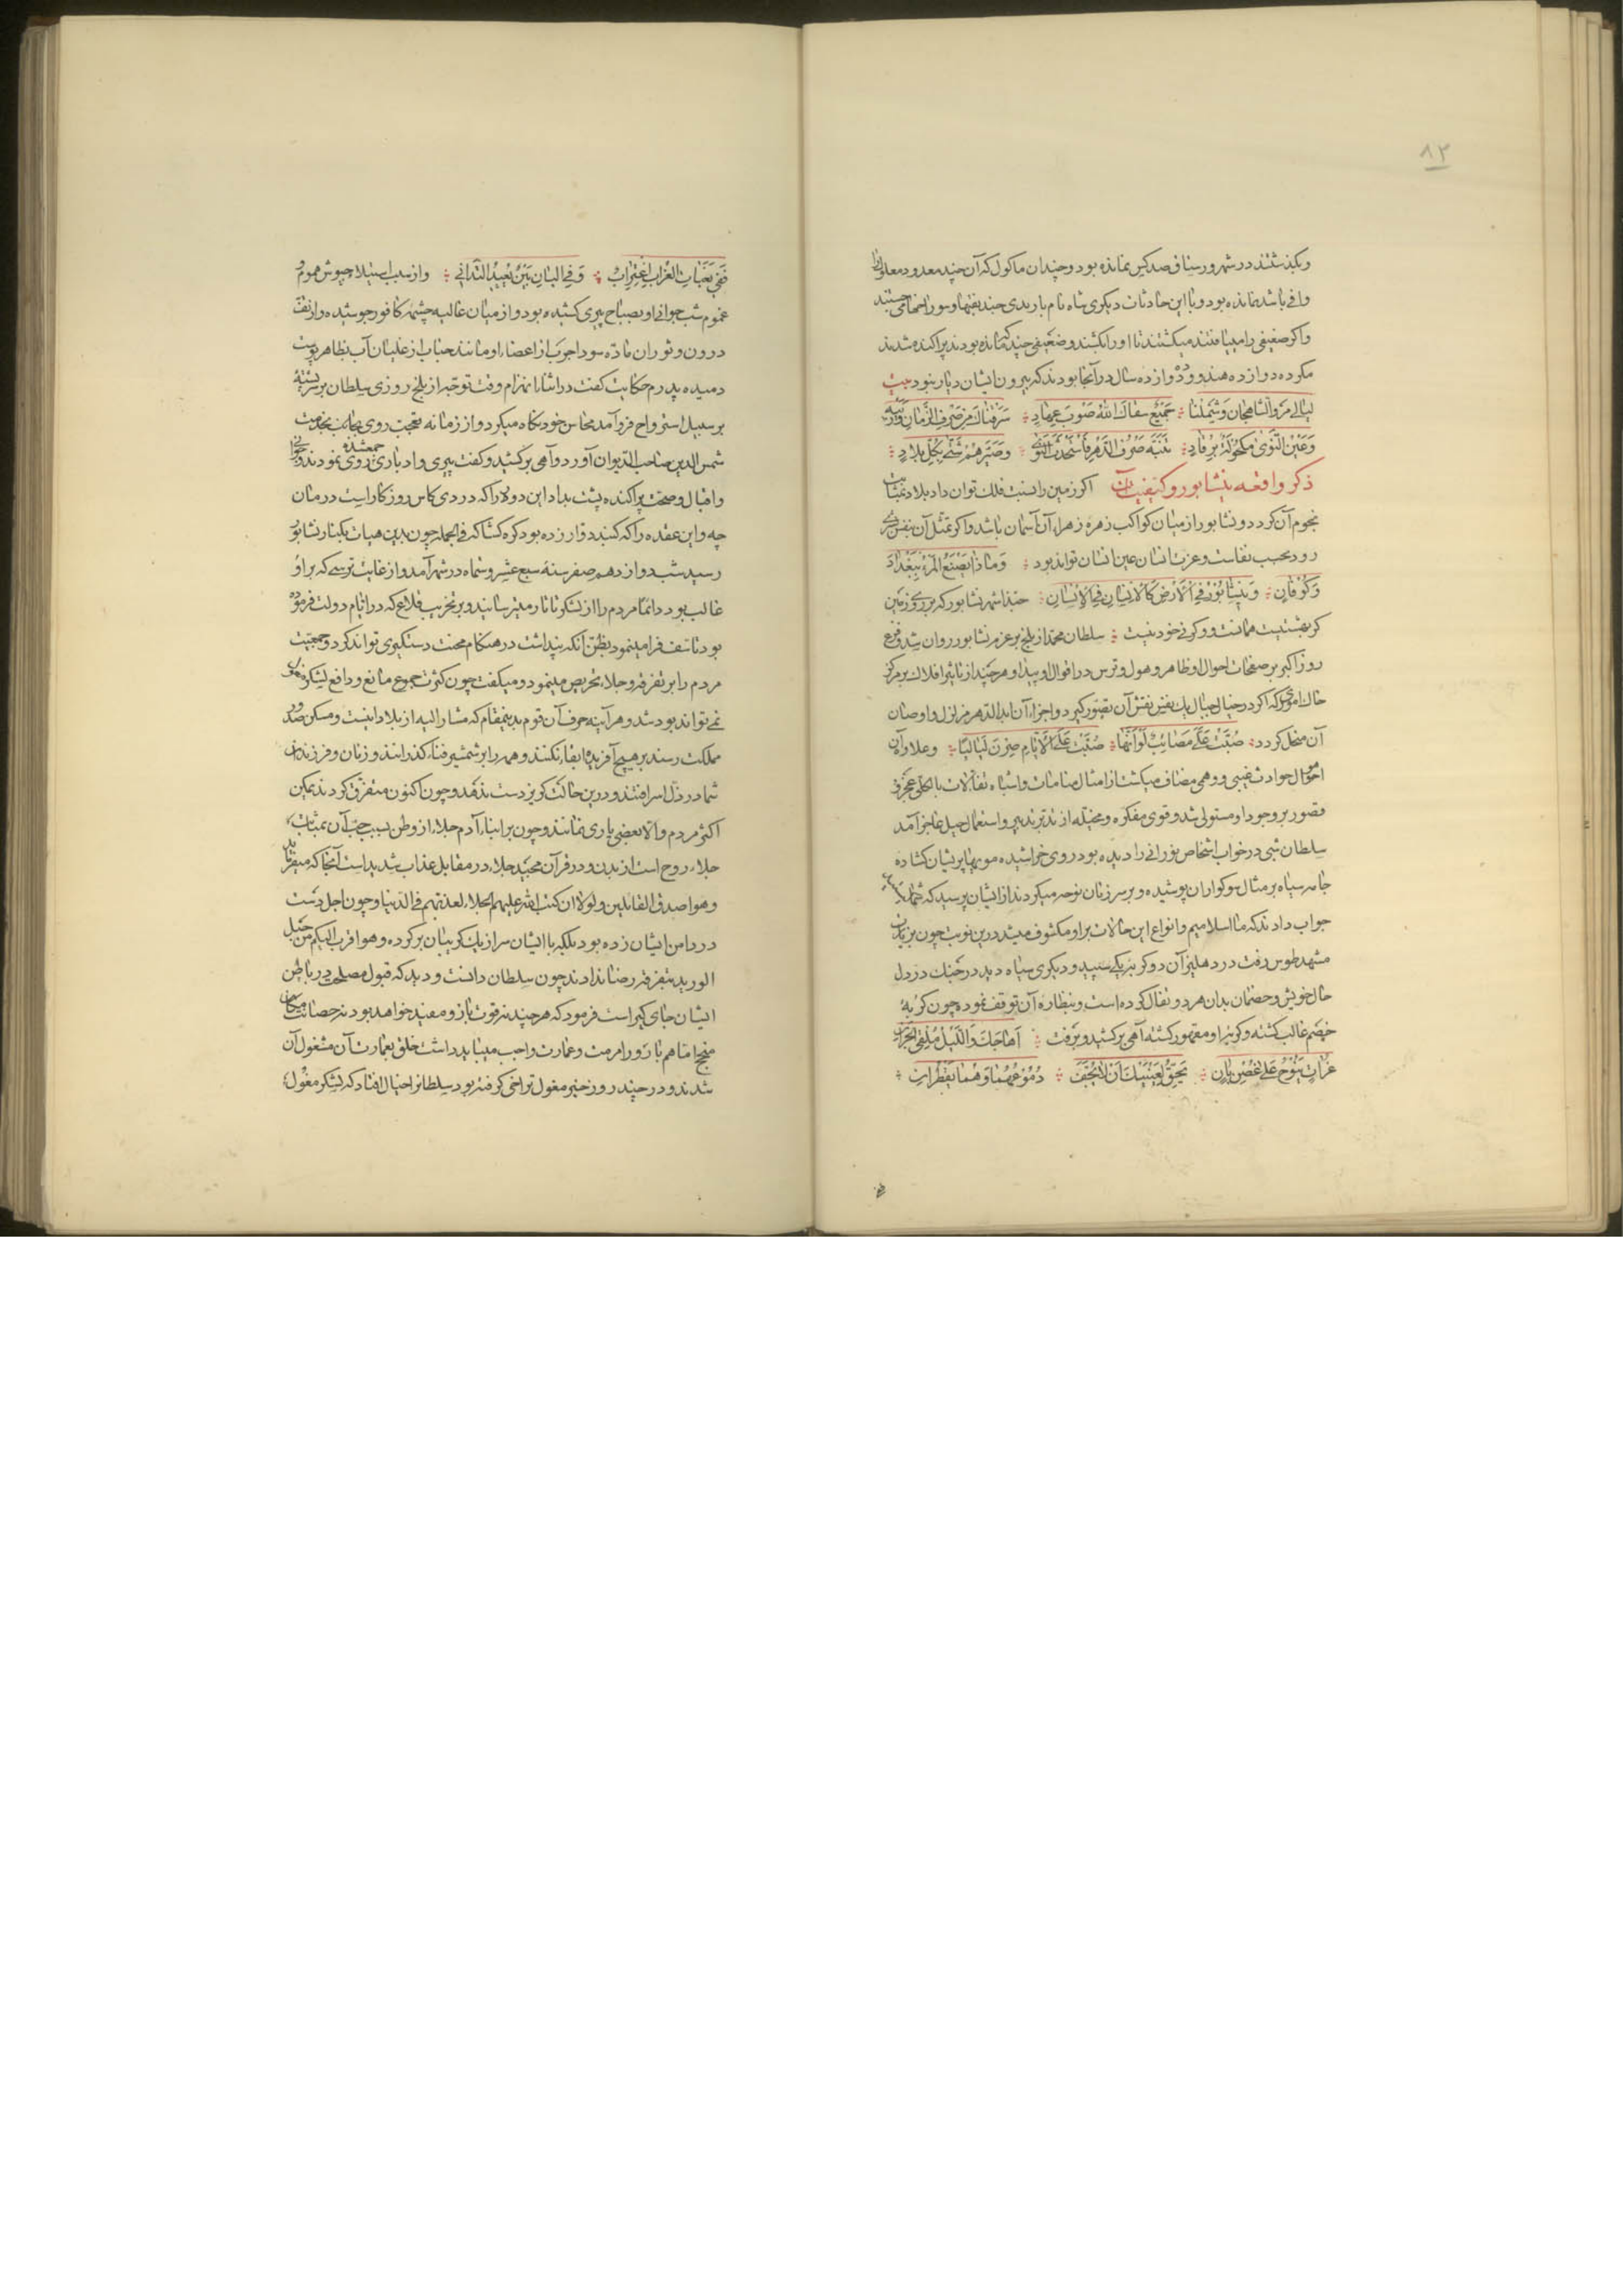 ۸۳
و بگذشتند در شهر و رستاق صد کس نمانده بود و چندان ماکول که آن چند معدود معلول را
وافی باشد نمانده بود و با این حادثات دیکری شاه نام با رندی چند بنقبها و سوراخها می جستند
و اکر ضعیفی را مییافتند میکشتند تا اورا بکشند و ضعیفی چند که مانده بودند پراکنده شدند
مکر ده دوازده هندو و ده دوازده سال در آنجا بودند که بیرون ایشان دیار نبود بیت
لیالی مرو الشاهجان و شملنا جمیع سقاک الله صوب عهاد سرقناک من صرف الزمان و ریبه
و عین النوی مکحولة برقاد تنبه صروف الدهر فاستحدث النوی و صیرهم شتی بکل بلاد
ذکر واقعه نیشابور و کیفیت آن اکر زمین را نسبت فلک توان داد بلاد بمثابت
نجوم آن کردد و نشابور از میان کواکب زهره زهراء آن آسمان باشد و اکر تمثل آن بنفس بشری
رود بحسب نفاست و عزت انسان عین انسان تواند بود و ماذا یصنع المرء ببغداد
و کوفان و نیشابور فی الارض کالانسان فی الانسان حبذا شهر نشابور که بر روی زمین
کر بهشتیست همانست و کرنی خود نیست سلطان محمد از بلخ بر عزم نشابور روان شد و فزع
روز اکبر بر صفحات احوال او ظاهر و هول و ترس در اقوال او پیدا و هر چند از تاثیر افلاک بر مرکز
خاک اموری که اکر در خیال جبال یک نفس نقش آن تصور کیرد و اجزاء آن ابد الدهر مزلزل و اوصال
آن منحل کردد صبت علی مصائب لو انها صبت علی الایام صرن لیالیا و علاوه آن
احوال حوادث غیبی و وهمی مضاف میکشت از امثال منامات و اشباه تفالات تا بکلی عجز و
قصور بر وجود او مستولی شد و قوی مفکره و مخیله از تدبیر و استعمال حیل عاجز آمد
سلطان شبی در خواب اشخاص نورانی را دیده بود روی خراشیده مویها پریشان کشاده
جامه سیاه بر مثال سوکواران پوشیده و بر سر زنان نوحه میکردند از ایشان پرسید که شما کیستید
جواب دادند که ما اسلامیم و انواع این حالات بر او مکشوف میشد درین نوبت چون بزیارت
مشهد طوس رفت در دهلیز آن دو کربه یکی سپید و دیکری سیاه دید در جنک در دل
حال خویش و خصمان بدان هر دو تفال کرده است و بنظاره آن توقف نموده چون کربهٔ
خصم غالب کشته و کربهٔ او مقهور کشته آهی برکشید و برفت اهاجک و اللیل ملقی الجران
غراب ینوح علی غصن بان یحق لعینیک ان لا یجف دموعهما و هما یقطران
ففی نعبات الغراب اغتراب و فی البان بین بعید التدانی و از سبب استیلاء جیوش هموم و
غموم شب جوانی او بصباح پیری کشیده بود و از میان غالیه چشمه کافور جوشیده و از تف
درون و ثوران ماده سودا جرب از اعضاء او مانند حباب از غلیان آب بظاهر پوست
دمیده پدرم حکایت کفت در اثنا انهزام وقت توجه از بلخ روزی سلطان بر سر پشتهٔ
بر سبیل استرواح فرو آمد محاسن خود نکاه میکرد و از زمانه تعجب روی بجانب جدت
شمس الدین صاحب الدیوان آورد و آهی برکشید و کفت پیری و ادباری جمع شده روی نمودند و جوانی
و اقبال و صحت پراکنده پشت بداد این درد را که دردی کاس روزکار است درمان
چه و این عقده را که کنبد دوار زده بود کره کشا که فی الجمله چون بدین هیات بکنار نشابور
رسید شب دوازدهم صفر سنهٔ سبع عشر و ستمایه در شهر آمد و از غایت ترسی که بر او
غالب بود دائما مردم را از لشکر تاتار میترسانید و بر تخریب قلاع که در ایام دولت فرموده
بود تاسف فرا مینمود بظن آنکه پنداشت در هنکام محنت دستکیری تواند کرد و جمعیت
مردم را بر تفرقه و جلاء تحریض مینمود و میکفت چون کثرت جموع مانع و دافع لشکر مغول
نمی تواند بود شد و هر آینه چون آن قوم بدینمقام که مشار الیه از بلاد اینست و مسکن صدور
مملکت رسند بر هیچ آفریده ابقاء نکنند و همه را بر شمشیر فناء کذرانند و زنان و فرزندان
شما در ذل اسر افتند و درین حالت کریز دست ندهد و چون اکنون متفرق کردند یمکن
اکثر مردم و الا بعضی باری بمانند و چون بر ابناء آدم جلاء از وطن بسبب حب آن بمثابت
جلاء روح است از بدن و در قرآن مجید جلاء در مقابل عذاب شدید است آنجا که میفرماید
و هو اصدق القائلین و لولا ان کتب الله علیهم الجلاء لعذبهم فی الدنیا و چون اجل دست
در دامن ایشان زده بود بلکه با ایشان سر از یک کریبان بر کرده و هو اقرب الیکم من حبل
الورید بتفرقه رضا ندادند چون سلطان دانست و دید که قبول مصلحت در باطن
ایشان جای کیر است فرمود که هر چند نه قوت بازو مفید خواهد بود نه حصانت مکان
منجح اما هم بارو را مرمت و عمارت واجب میباید داشت خلق بعمارت آن مشغول آن
شدند و در چند روز خبر مغول تراخی کرفته بود سلطان را خیال افتاد که لشکر مغول